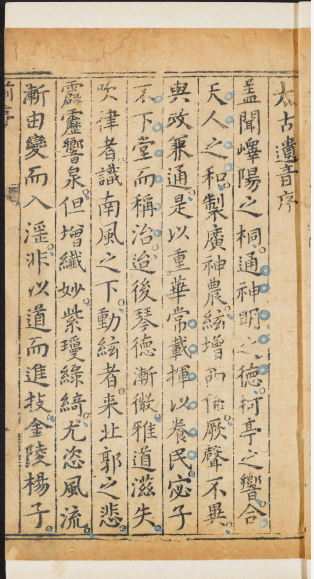 太古遺音序
蓋聞嶧陽之桐通神明之德柯亭之響合
天人之和製廣神農絃增西伯厥聲不異
與政兼通是以重華常載揮以養民宓子
不下堂而稱治迨後琴德漸微雅道滋失
吹津者識南風之下動絃者来北郭之悲
霹靂響泉但增纖妙紫瓊綠綺尤恣風流
漸由變而入滛非以道而進技金陵楊子